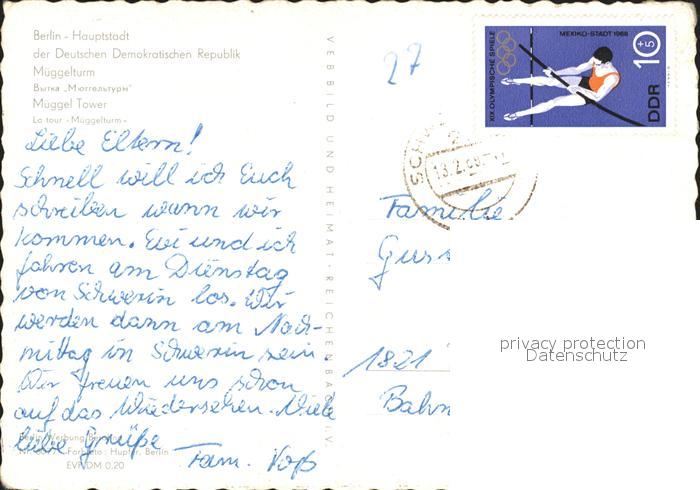 Berlin - Hauptstadt
der Deutschen Demokratischen Republik
Müggelturm
Вытка „Мюггельтурм"
Müggel Tower
La tour -Müggelturm-
Liebe Eltern!
Schnell will ich Euch
schreiben wann wir
kommen. Evi und ich
fahren am Dienstag
von Schwerin los. Wir
werden dann am Nach-
mittag in Schwerin sein.
Wir freuen uns schon
auf das Wiedersehen. Viele
liebe Grüße
Fam. Voß
Foto: Hupfer, Berlin
EVP DM 0,20
VEB BILD UND HEIMAT · REICHENBACH I. V.
27
XIX. OLYMPISCHE SPIELE
MEXIKO-STADT 1968
10+5
DDR
Familie
1821
Bahn
privacy protection
Datenschutz